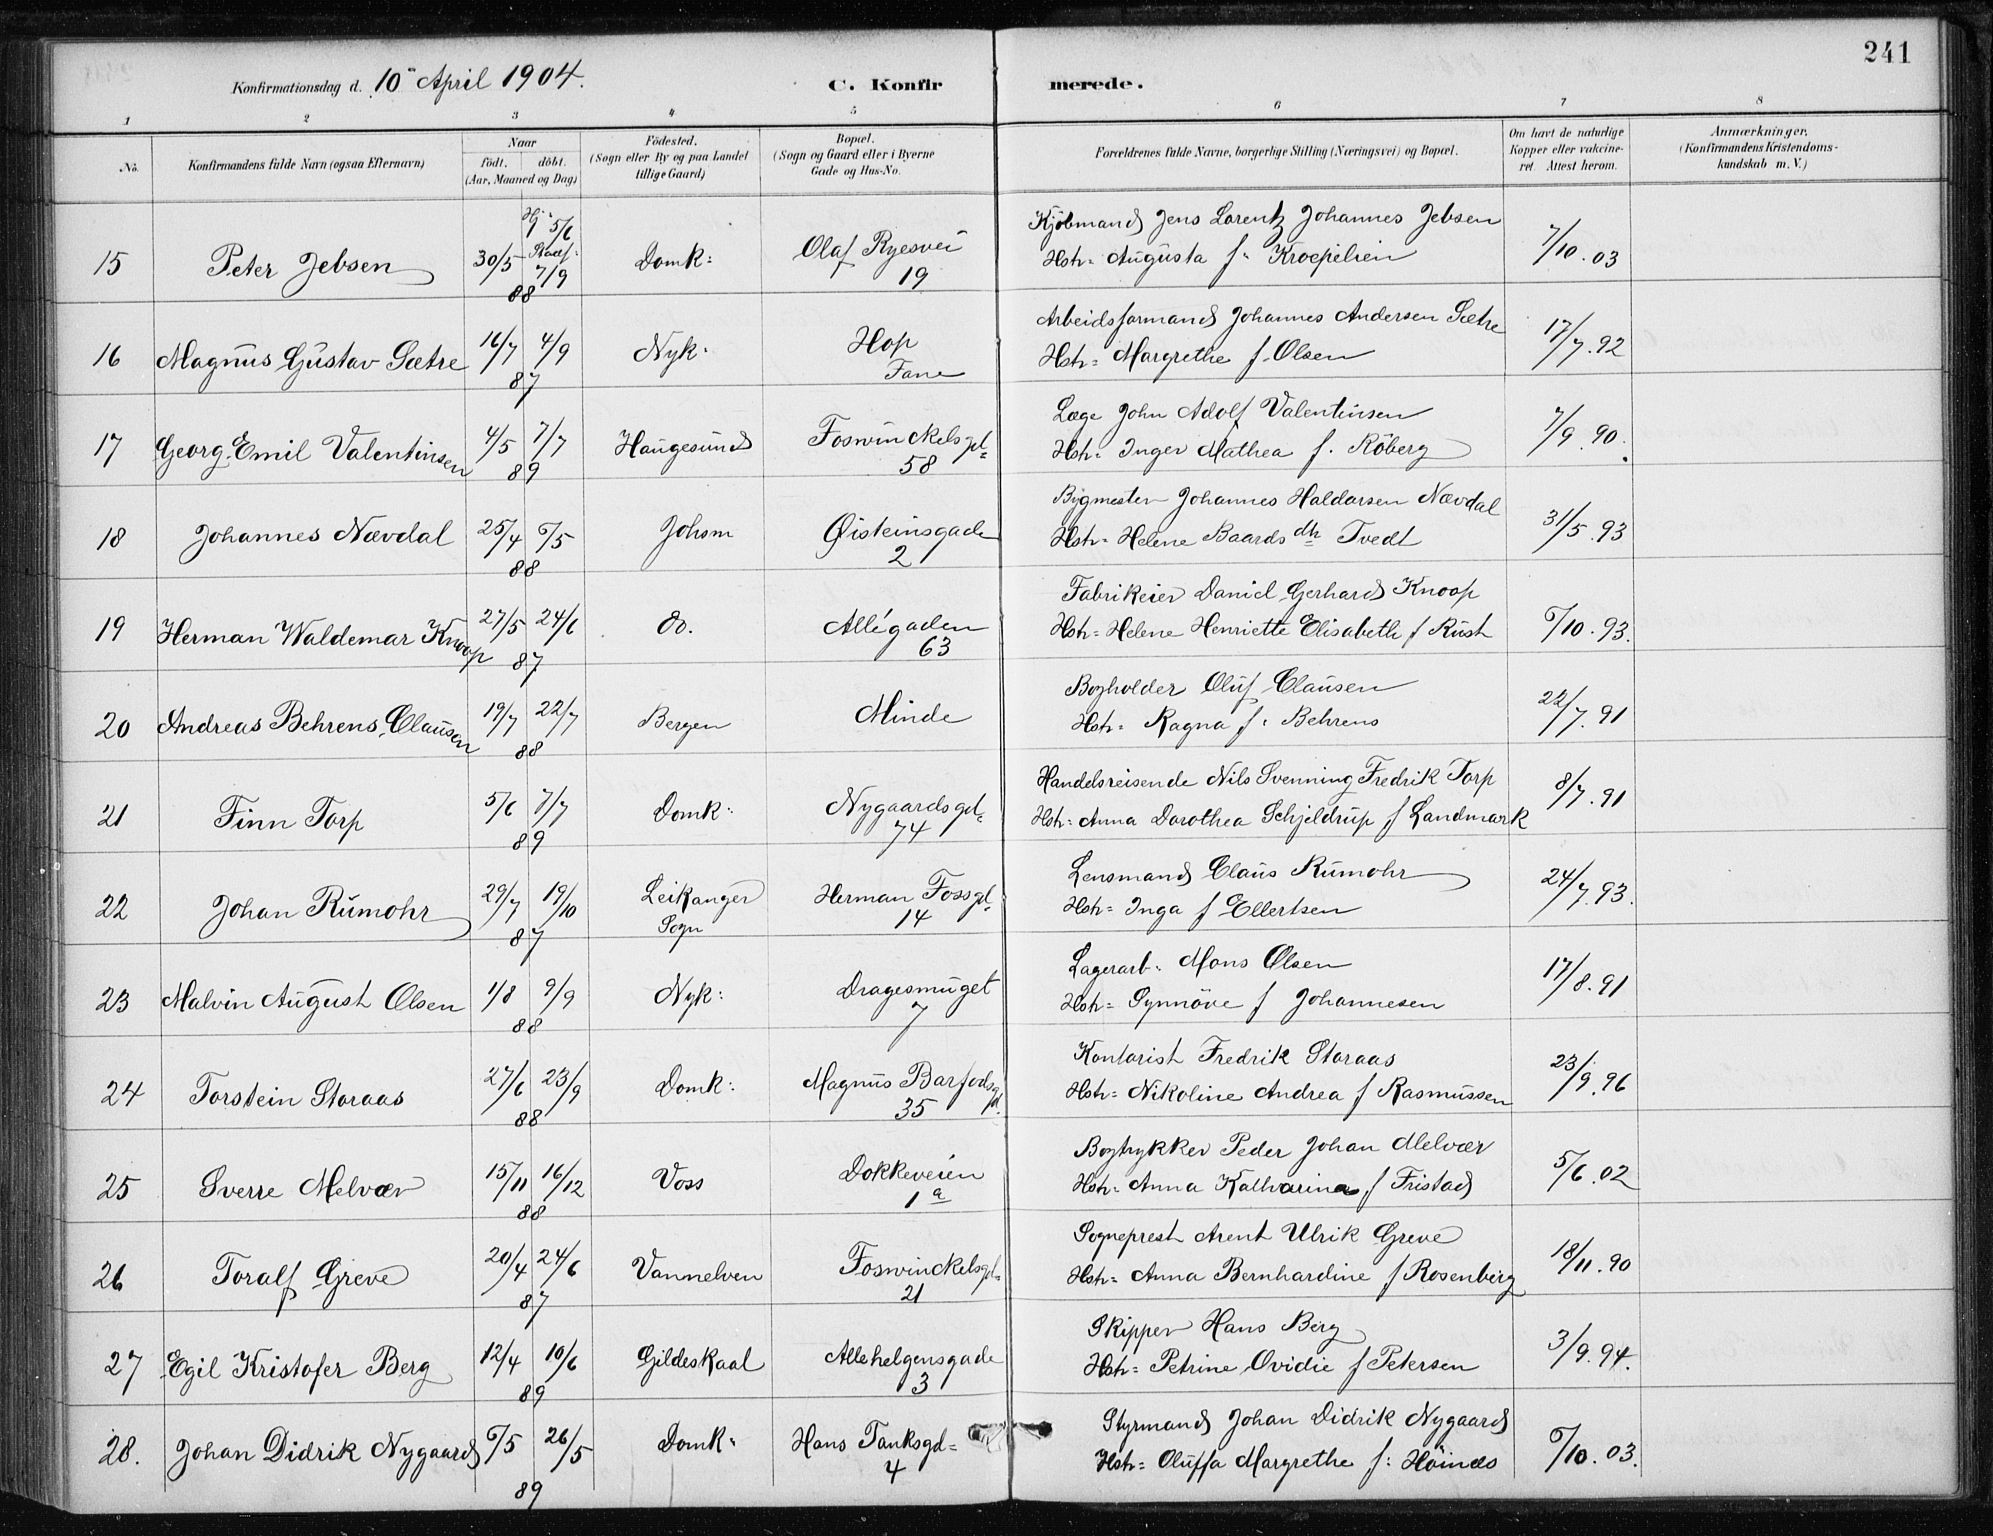 241
Konfirmationsdag d. 10de April 1904.
C. Konfir merede.
1 2 3 4 5 6 7 8
No. Konfirmandens fulde Navn (ogsaa Efternavn)
Naar
født. døbt.
(Aar, Maaned og Dag)
Fødested.
(Sogn eller By og paa Landet
tillige Gaard)
Bopæl.
(Sogn og Gaard eller i Byerne
Gade og Hus-No.
Forældrenes fulde Navne, borgerlige Stilling (Næringsvei) og Bopæl.
Om havt de naturlige
Kopper eller vakcine-
ret. Attest herom.
Anmærkninger.
(Konfirmandens Kristendoms-
kundskab m. V.)
15 Peter Jebsen 30/5 Hj: 5/6 Stadf: 7/9 88 Domk: Olaf Ryesvei 19
Kjøbmand Jens Lorentz Johannes Jebsen
Hstr: Augusta f. Kroepelien 7/10. 03
16 Magnus Gustav Sætre 16/7 4/9 87 Nyk: Hop Fane
Arbeidsformand Johannes Andersen Sætre
Hstr: Margrethe f. Olsen 17/7. 92
17 Georg Emil Valentinsen 4/5 7/7 89 Haugesund Foswinckelsgd= 58
Læge John Adolf Valentinsen
Hstr: Inger Mathea f. Röberg 7/9. 90.
18 Johannes Nævdal 25/4 6/5 88 Johsm Øisteinsgade 2
Bygmester Johannes Haldorsen Nævdal
Hstr: Helene Baardsdtr Tvedt 31/5. 93
19 Herman Waldemar Knoop 27/5 24/6 87 do. Allégaden 63
Fabrikeier Daniel Gerhard Knoop
Hstr: Helene Henriette Elisabeth f Rüsh 6/10. 93.
20 Andreas Behrens Clausen 19/7 22/7 88 Bergen Minde
Bogholder Oluf Clausen
Hstr: Ragna f: Behrens 22/7. 91
21 Finn Torp 5/6 7/7 89 Domk: Nygaardsgd= 74
Handelsreisende Nils Svenning Fredrik Torp
Hstr: Anna Dorothea Schjeldrup f Landmark 8/7. 91
22 Johan Rumohr 29/7 19/10 87 Leikanger Sogn Herman Fossgd= 14
Lensmand Claus Rumohr
Hstr: Inga f Ellertsen 24/7. 93.
23 Malvin August Olsen 1/8 9/9 88 Nyk: Dragesmuget 7
Lagerarb: Mons Olsen
Hstr: Synnöve f Johannesen 17/8. 91
24 Torstein Storaas 27/6 23/9 88 Domk: Magnus Barfodsgd. 35
Kontorist Fredrik Storaas
Hstr: Nikoline Andrea f Rasmussen 23/9. 96
25 Sverre Melvær 15/11 16/12 88 Voss Dokkeveien 1a
Bogtrykker Peder Johan Melvær
Hstr: Anna Katharina f Fristad 5/6. 02
26 Toralf Greve 20/4 24/6 87 Vannelven Foswinckelsgd= 21
Sogneprest Arent Ulrik Greve
Hstr: Anna Bernhardine f Rosenberg 18/11. 90
27 Egil Kristofer Berg 12/4 10/6 89 Gildeskaal Allehelgensgade 3
Skipper Hans Berg
Hstr: Petrine Ovidie f Petersen 3/9. 94.
28. Johan Didrik Nygaard 6/5 26/5 89 Domk: Hans Tanksgd= 4
Styrmand Johan Didrik Nygaard
Hstr: Oluffa Margrethe f: Höinæs 6/10. 03.